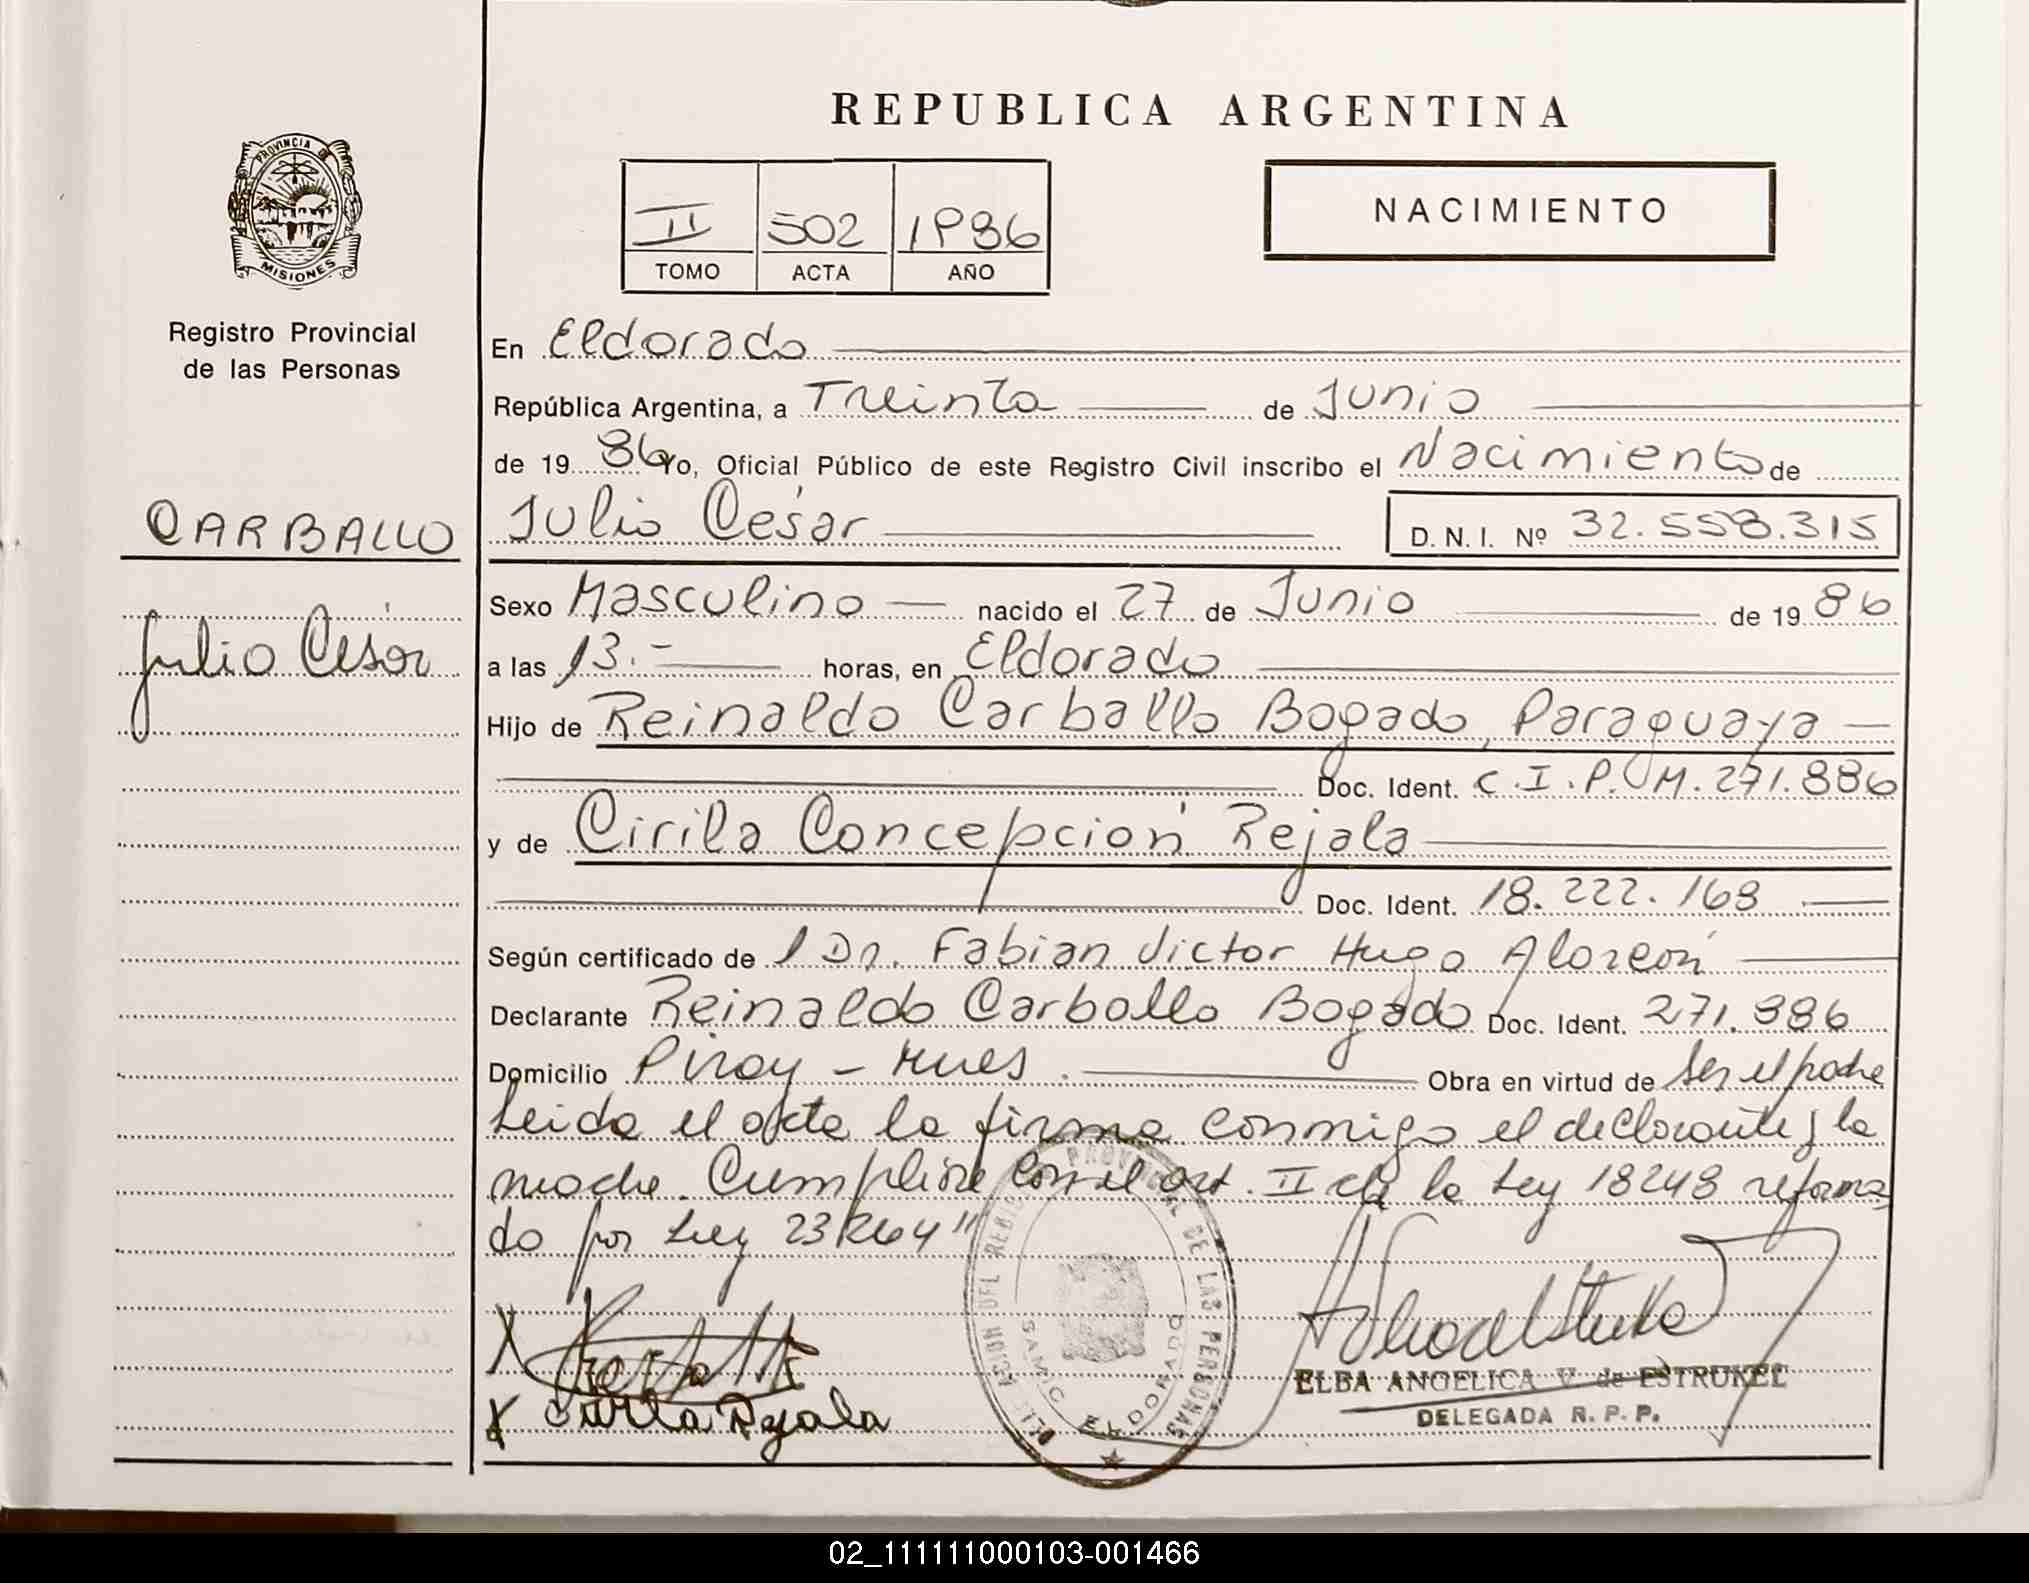 REPUBLICA ARGENTINA
PROVINCIA DE
MISIONES
Registro Provincial
de las Personas
II 502 1986
TOMO ACTA AÑO
NACIMIENTO
En Eldorado
República Argentina, a Treinta de Junio
de 19 86 Yo, Oficial Público de este Registro Civil inscribo el Nacimiento de
CARBALLO
Julio César
D. N. I. Nº 32.558.315
Julio César
Sexo Masculino nacido el 27 de Junio de 19 86
a las 13.- horas, en Eldorado
Hijo de Reinaldo Carballo Bogado, Paraguaya
Doc. Ident. C.I.P.M. 271.886
y de Cirila Concepción Rejala
Doc. Ident. 18.222.168
Según certificado de l Dr. Fabian Victor Hugo
Declarante Reinaldo Carballo Bogado Doc. Ident. 271.886
Domicilio Piray - Mnes. Obra en virtud de ser el padre
Leida el acta la firma conmigo el declarante y la
madre. Cumpliré con el art. II de la Ley 18248 reforma
do por Ley 23264"
Cirila Rejala
PROVINCIAL DE LAS PERSONAS
SAMIC ELDORADO
ELBA ANGELICA V. de ESTRUKEL
DELEGADA R. P. P.
02_111111000103-001466